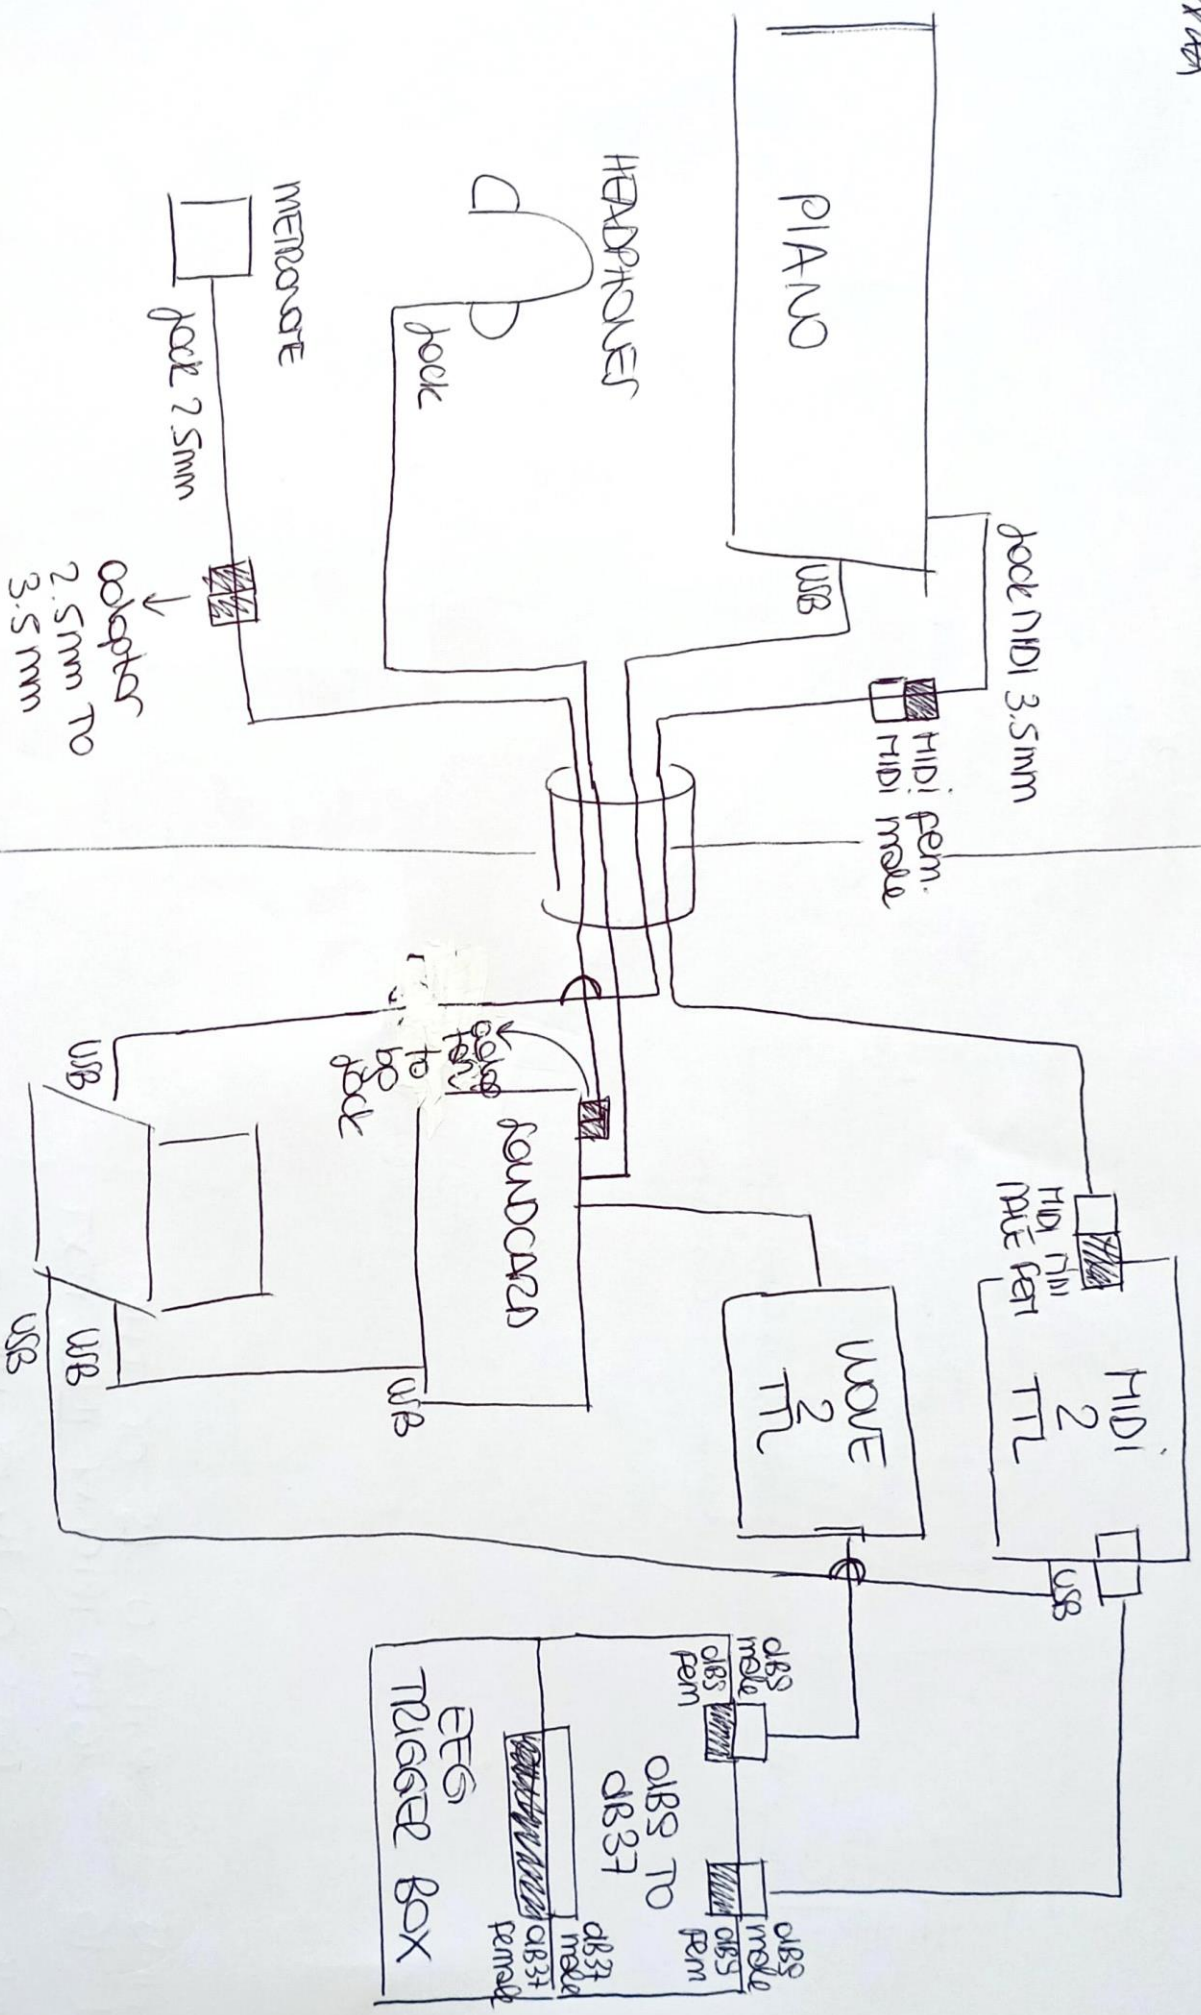 PIANO
USB
Jack MIDI 3.5mm
MIDI fem.
MIDI male
HEADPHONES
Jack
METRONOTE
Jack 2.5mm
adaptor
2.5mm TO
3.5mm
USB
Jack
SOUNDCARD
USB
USB
USB
WAVE
2
TTL
MIDI MIDI
MALE FEM
MIDI
2
TTL
USB
dB9
male
dB9
fem
dB9 TO
dB37
dB9
male
dB9
fem
dB37
male
dB37
female
EEG
TRIGGER BOX